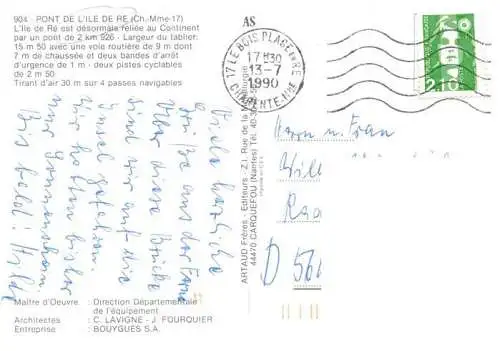 904 - PONT DE L'ILE DE RE (Ch.-Mme-17)
L'Ile de Ré est désormais reliée au Continent
par un pont de 2 km 926 - Largeur du tablier:
15 m 50 avec une voie routière de 9 m dont
7 m de chaussée et deux bandes d'arrêt
d'urgence de 1 m - deux pistes cyclables
de 2 m 50
Tirant d'air 30 m sur 4 passes navigables
Viele herzliche
Grüße aus der Ferne
Über diese Brücke
sind wir auf die
Insel gefahren.
Wir hatten bisher
nur Sonnenschein
Bis bald!
Maître d'Oeuvre : Direction Départementale
de l'équipement
Architectes : C. LAVIGNE - J. FOURQUIER
Entreprise : BOUYGUES S.A.
ARTAUD Frères - Editeurs - Z.I. Rue de la
44470 CARQUEFOU (Nantes) Tél. 40-30
AS
17 LE BOIS PLAGE EN RE
17 H30
13-7
1990
CHARENTE-MME
2,10
Herrn u. Frau
Will
D 56